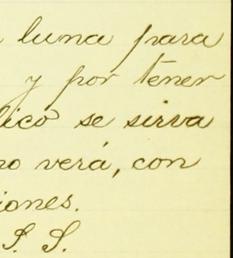 luna para
y por tener
lico se sirva
no verá, con
iones.
S. S.